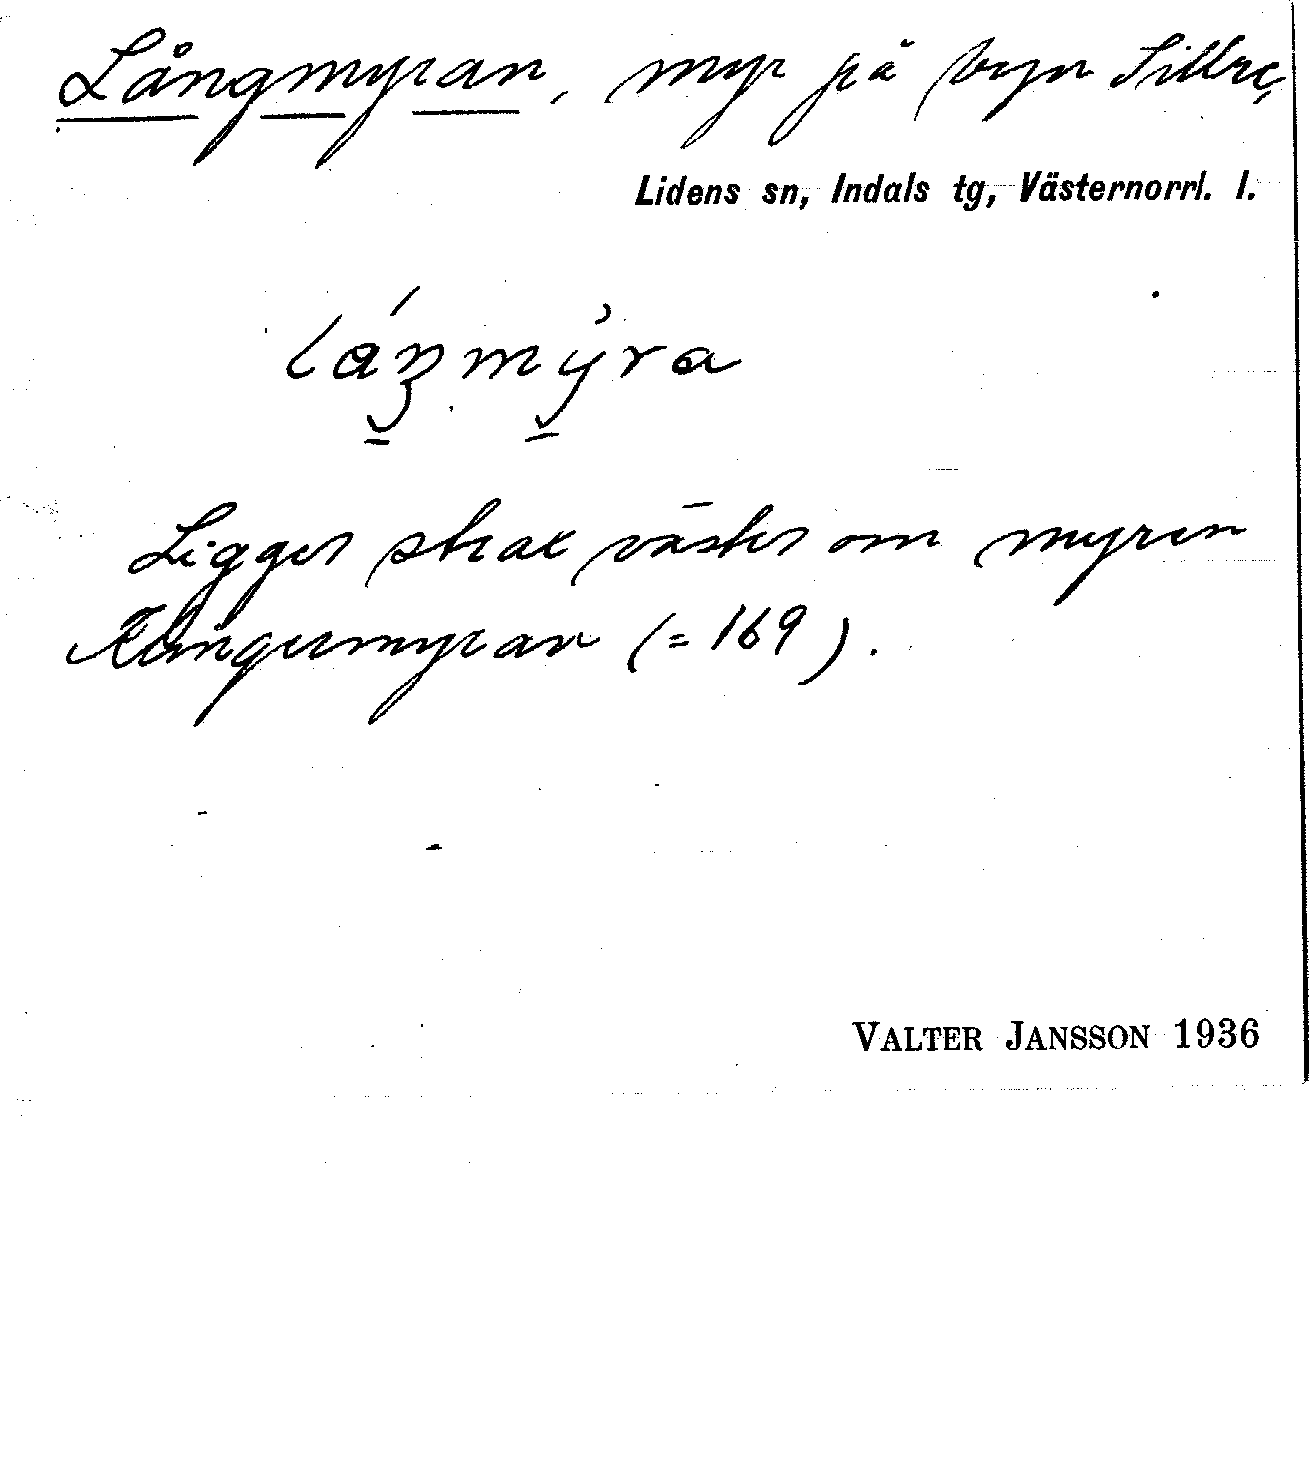 Långmyran, myr på byn Sillre,
Lidens sn, Indals tg, Västernorrl. l.
Ligger strax väster om myren
(= 169).
VALTER JANSSON 1936